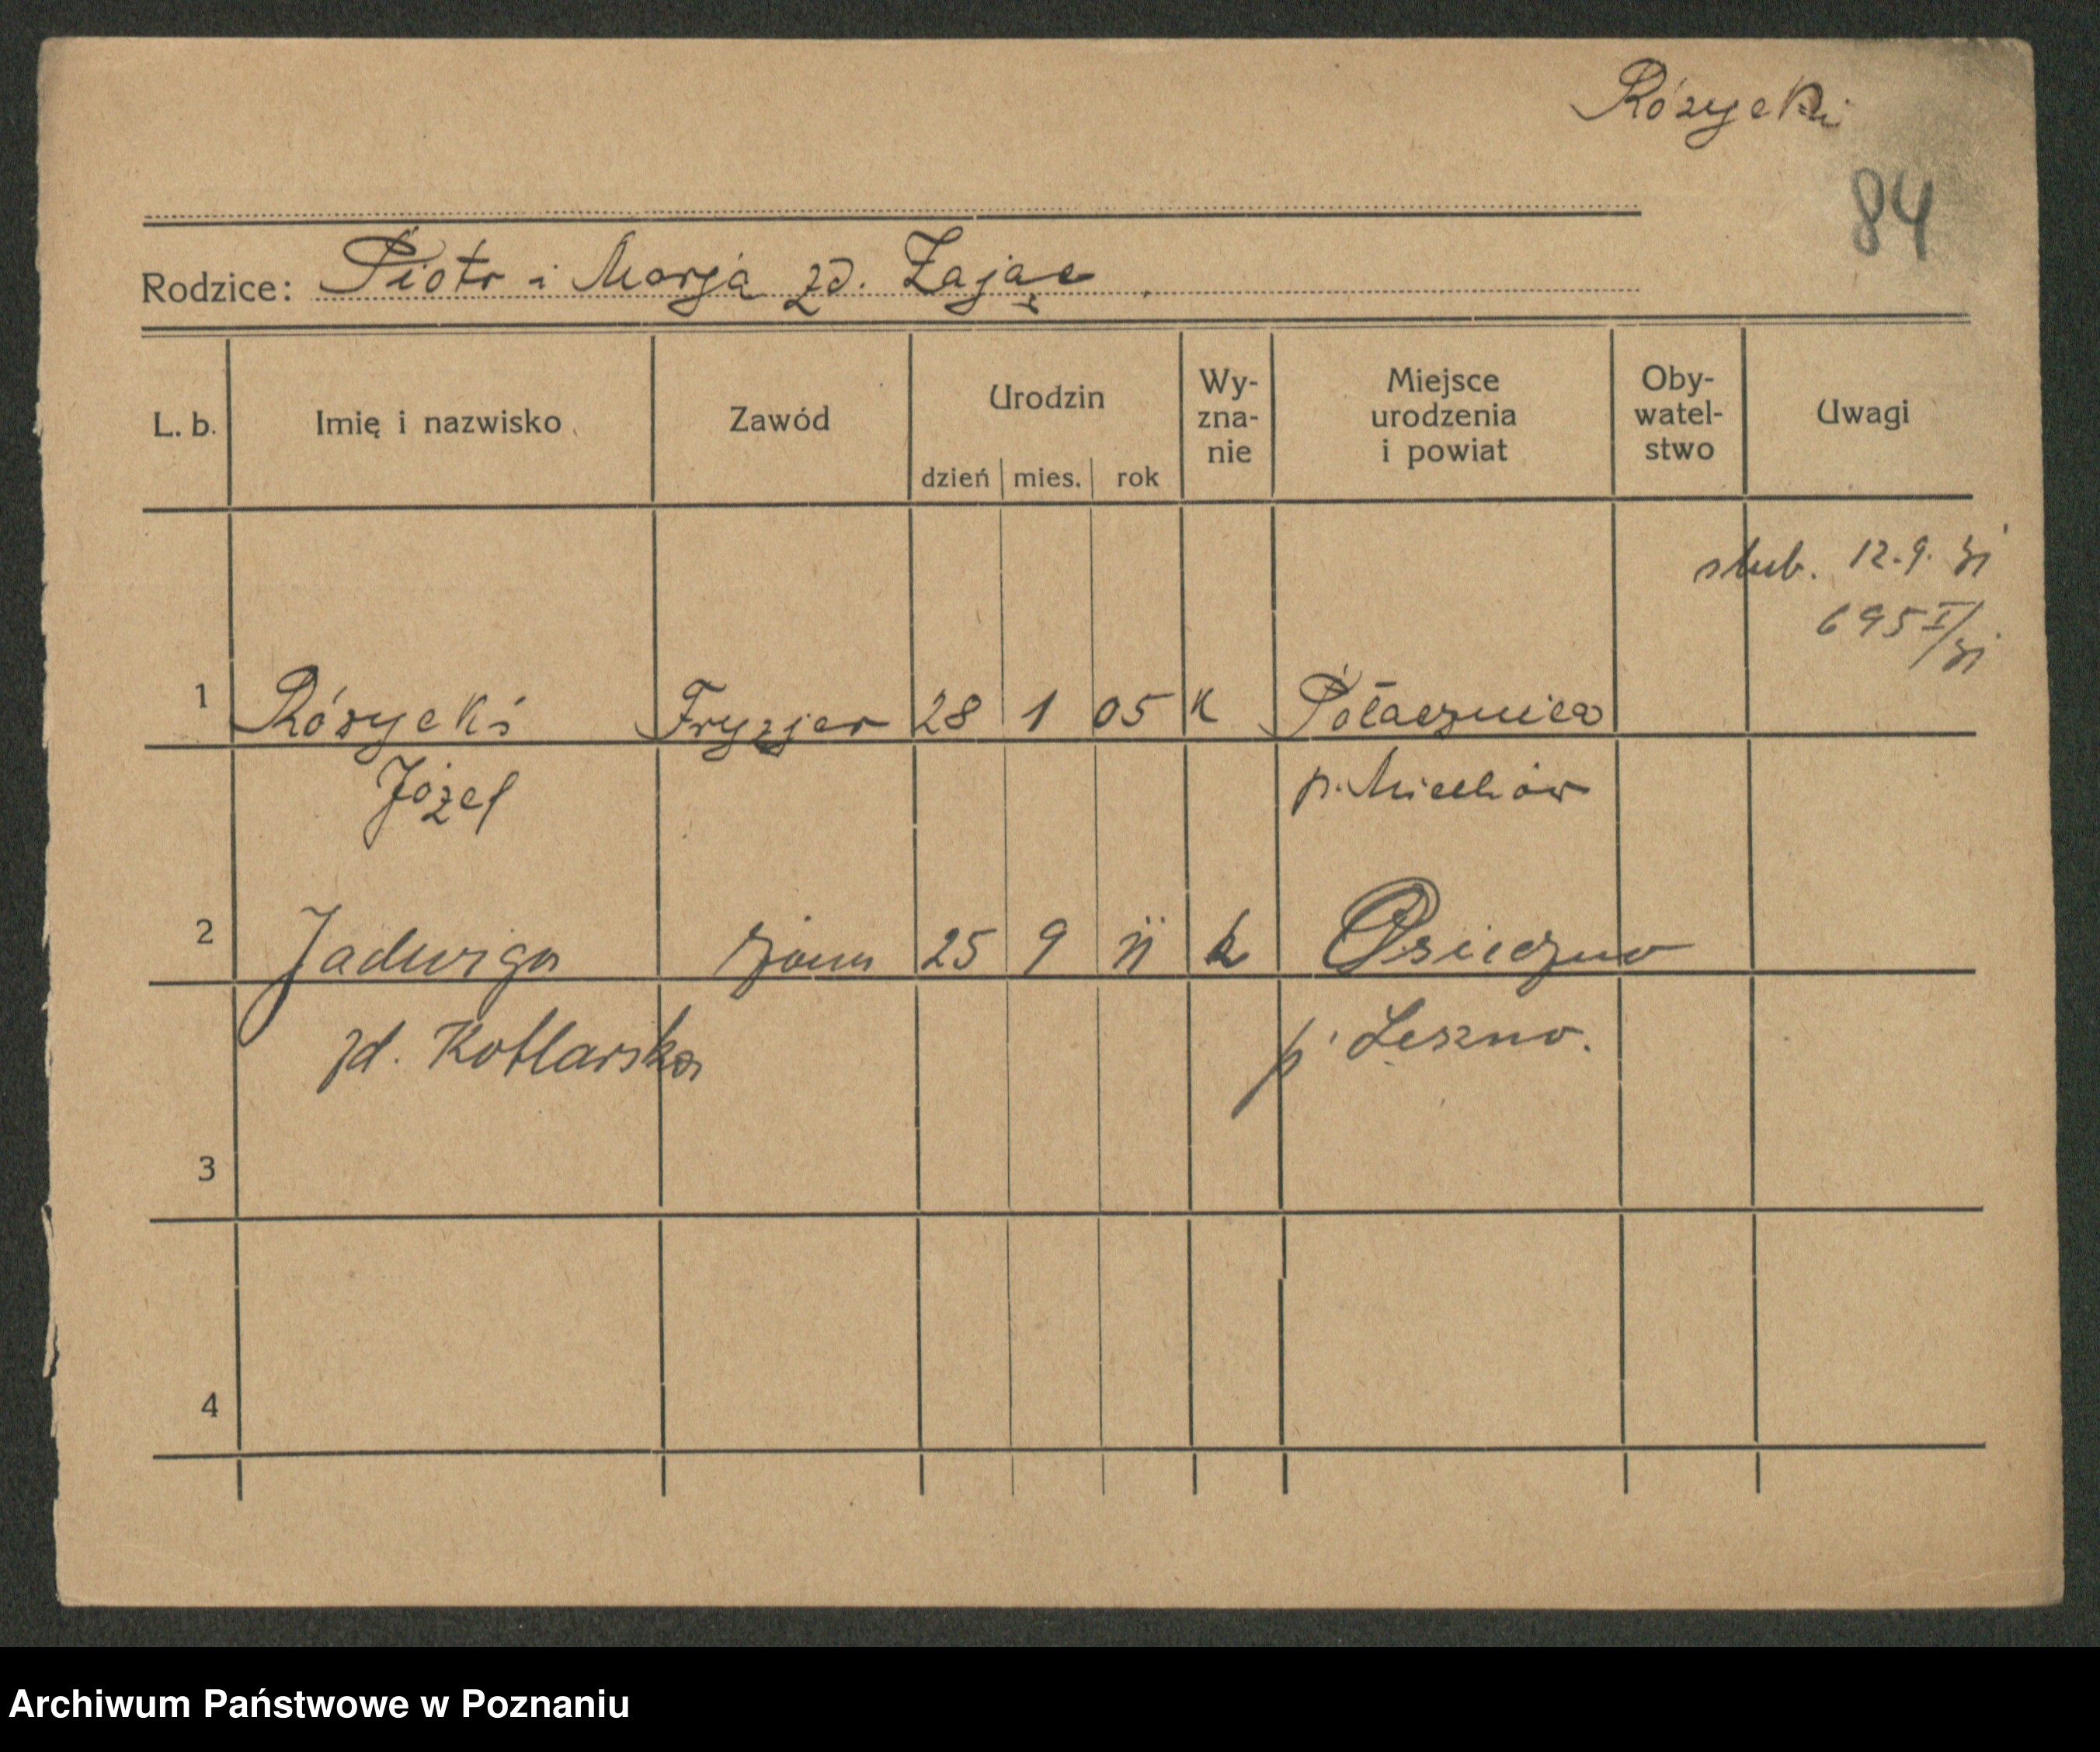 Różycki
84
Rodzice: Piotr i Marja zd. Zając
L. b. Imię i nazwisko Zawód Urodzin dzień mies. rok Wy-zna-nie Miejsce urodzenia i powiat Oby-watel-stwo Uwagi
ślub. 12.9.31
695 I/31
1 Różycki Fryzjer 28 1 05 K
Józef p. Miechów
2 Jadwiga żona 25 9 11 k Osieczno
zd. Kotlarska p. Leszno.
3
4
Archiwum Państwowe w Poznaniu